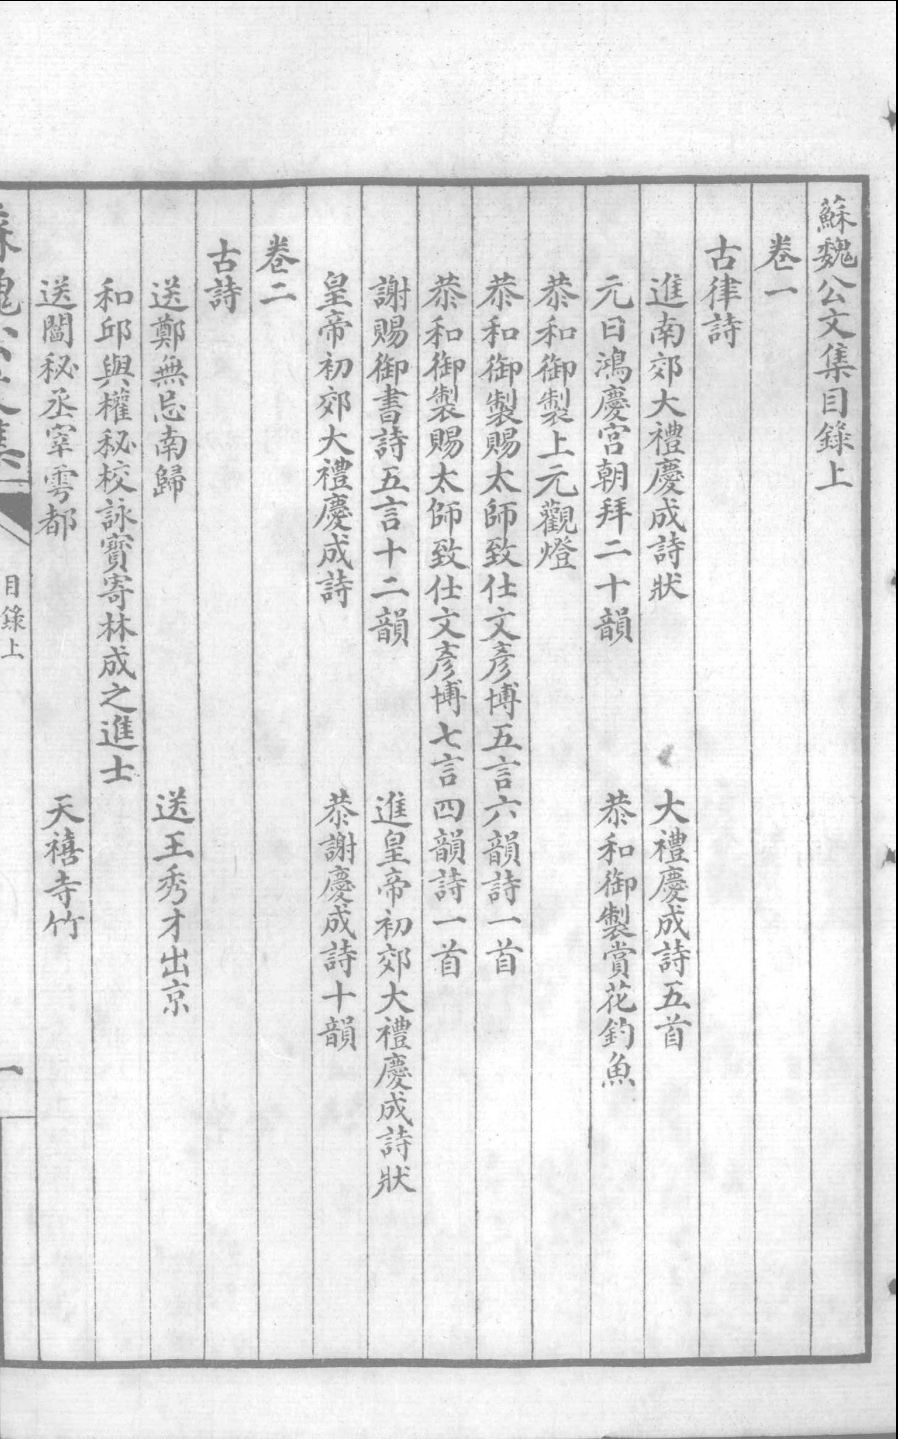 蘇魏公文集目錄上
卷一
古律詩
進南郊大禮慶成詩狀　大禮慶成詩五首
元日鴻慶宮朝拜二十韻　恭和御製賞花釣魚
恭和御製上元觀燈
恭和御製賜太師致仕文彥博五言六韻詩一首
恭和御製賜太師致仕文彥博七言四韻詩一首
謝賜御書詩五言十二韻　進皇帝初郊大禮慶成詩狀
皇帝初郊大禮慶成詩　恭謝慶成詩十韻
卷二
古詩
送鄭無忌南歸　送王秀才出京
和邱與權秘校詠寳寄林成之進士
送閻秘丞宰雩都　天禧寺竹
蘇魏公文集
目錄上
一